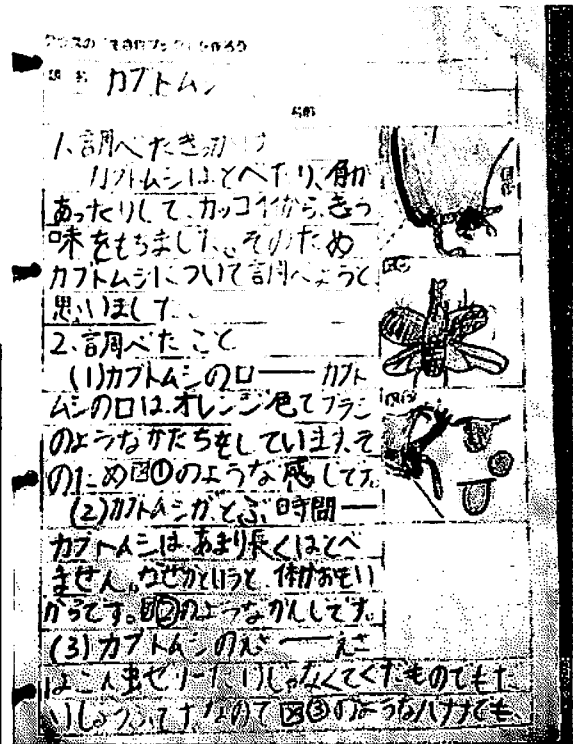 クラスの「生き物ブック」を作ろう
題名 カブトムシ
名前
1、調べたきっかけ
カブトムシはとべたり、角が
あったりして、カッコイイから、きょう
味をもちました。そのため
カブトムシについて調べようと
思いました。
2、調べたこと
(1)カブトムシの口―― カブト
ムシの口は、オレンジ色でブラシ
のようなかたちをしています。そ
のため図①のような感じです
(2)カブトムシがとぶ時間――
カブトムシはあまり長くはとべ
ません。なぜかというと、体がおもい
からです。図②のようなかんじです。
(3)カブトムシのえさ―― えさ
はこん虫ゼリーだけじゃなくてくだものでもだ
いじょうぶです。なので図③のようなバナナでも、